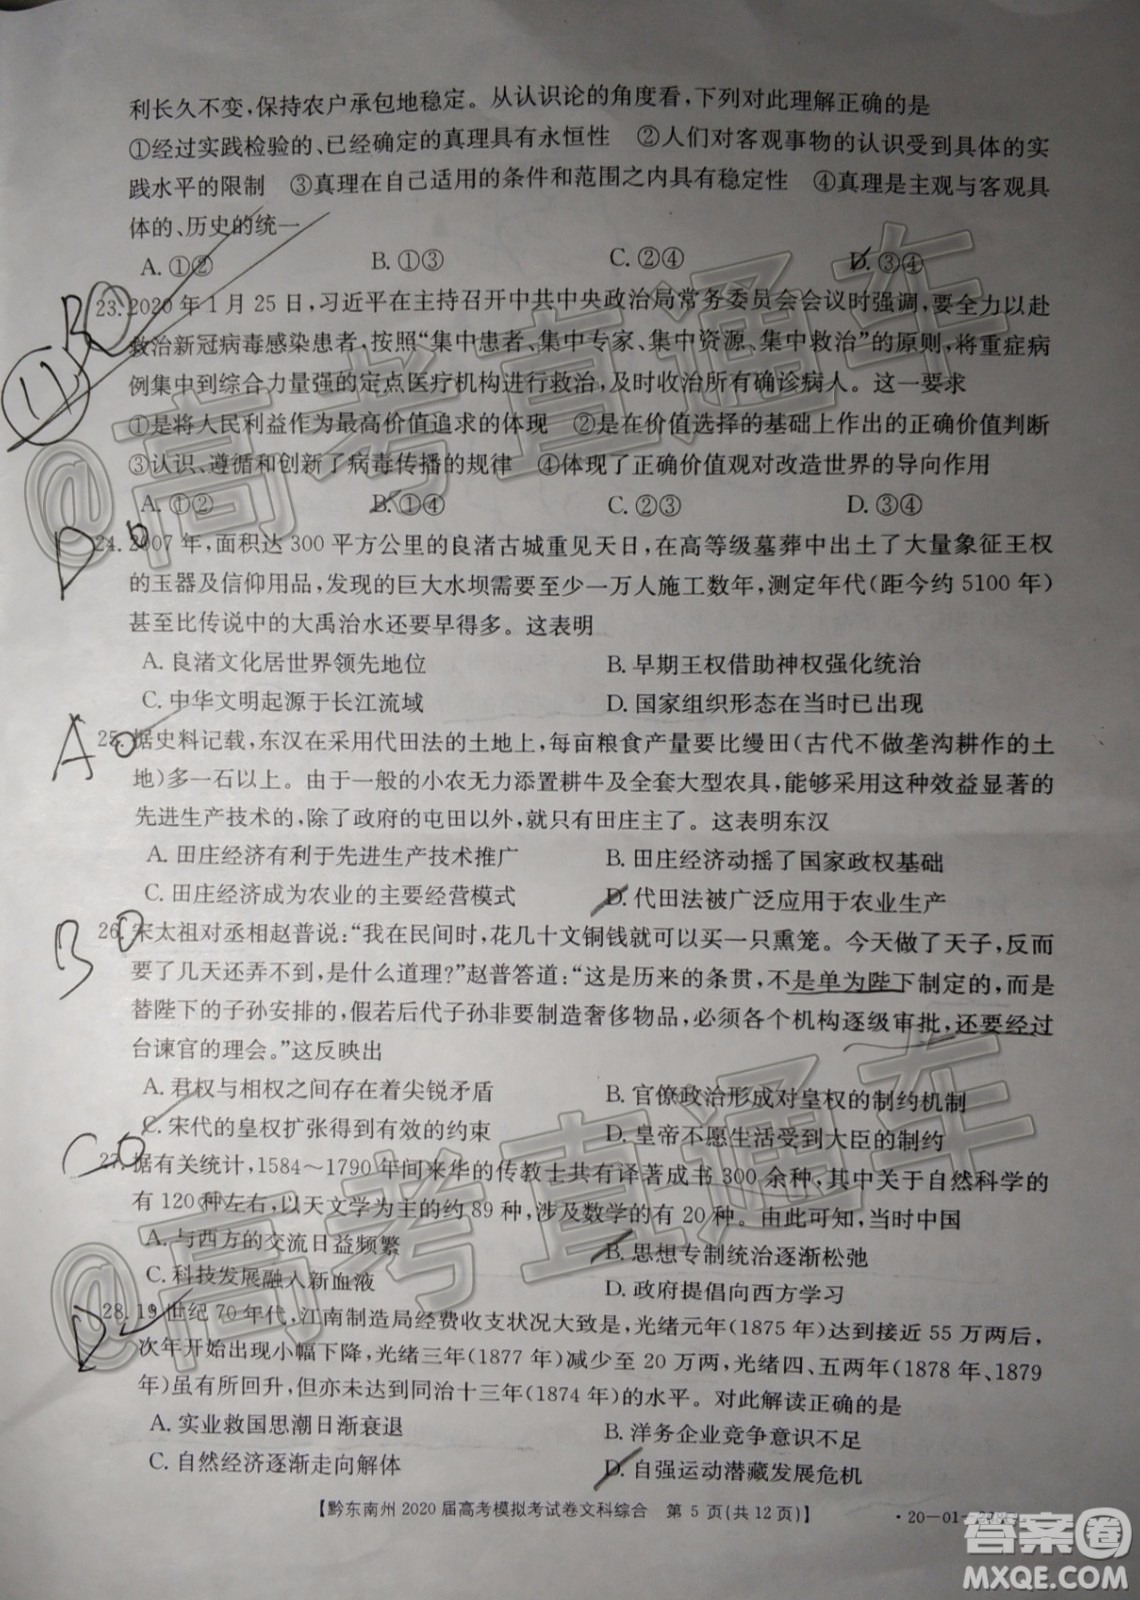 利长久不变,保持农户承包地稳定。从认识论的角度看,下列对此理解正确的是
①经过实践检验的、已经确定的真理具有永恒性 ②人们对客观事物的认识受到具体的实
践水平的限制 ③真理在自己适用的条件和范围之内具有稳定性 ④真理是主观与客观具
体的、历史的统一
A. ①② B. ①③ C. ②④ D. ③④
B
23. 2020 年 1 月 25 日,习近平在主持召开中共中央政治局常务委员会会议时强调,要全力以赴
救治新冠病毒感染患者,按照“集中患者、集中专家、集中资源、集中救治”的原则,将重症病
例集中到综合力量强的定点医疗机构进行救治,及时收治所有确诊病人。这一要求
11
①是将人民利益作为最高价值追求的体现 ②是在价值选择的基础上作出的正确价值判断
③认识、遵循和创新了病毒传播的规律 ④体现了正确价值观对改造世界的导向作用
A. ①② B. ①④ C. ②③ D. ③④
D
24. 2007 年,面积达 300 平方公里的良渚古城重见天日,在高等级墓葬中出土了大量象征王权
的玉器及信仰用品,发现的巨大水坝需要至少一万人施工数年,测定年代(距今约 5100 年)
甚至比传说中的大禹治水还要早得多。这表明
A. 良渚文化居世界领先地位 B. 早期王权借助神权强化统治
C. 中华文明起源于长江流域 D. 国家组织形态在当时已出现
A
25. 据史料记载,东汉在采用代田法的土地上,每亩粮食产量要比缦田(古代不做垄沟耕作的土
地)多一石以上。由于一般的小农无力添置耕牛及全套大型农具,能够采用这种效益显著的
先进生产技术的,除了政府的屯田以外,就只有田庄主了。这表明东汉
A. 田庄经济有利于先进生产技术推广 B. 田庄经济动摇了国家政权基础
C. 田庄经济成为农业的主要经营模式 D. 代田法被广泛应用于农业生产
B
26. 宋太祖对丞相赵普说:“我在民间时,花几十文铜钱就可以买一只熏笼。今天做了天子,反而
要了几天还弄不到,是什么道理?”赵普答道:“这是历来的条贯,不是单为陛下制定的,而是
替陛下的子孙安排的,假若后代子孙非要制造奢侈物品,必须各个机构逐级审批,还要经过
台谏官的理会。”这反映出
A. 君权与相权之间存在着尖锐矛盾 B. 官僚政治形成对皇权的制约机制
C. 宋代的皇权扩张得到有效的约束 D. 皇帝不愿生活受到大臣的制约
C
27. 据有关统计,1584～1790 年间来华的传教士共有译著成书 300 余种,其中关于自然科学的
有 120 种左右,以天文学为主的约 89 种,涉及数学的有 20 种。由此可知,当时中国
A. 与西方的交流日益频繁 B. 思想专制统治逐渐松弛
C. 科技发展融入新血液 D. 政府提倡向西方学习
D
28. 19 世纪 70 年代,江南制造局经费收支状况大致是,光绪元年(1875 年)达到接近 55 万两后,
次年开始出现小幅下降,光绪三年(1877 年)减少至 20 万两,光绪四、五两年(1878 年、1879
年)虽有所回升,但亦未达到同治十三年(1874 年)的水平。对此解读正确的是
A. 实业救国思潮日渐衰退 B. 洋务企业竞争意识不足
C. 自然经济逐渐走向解体 D. 自强运动潜藏发展危机
【黔东南州 2020 届高考模拟考试卷文科综合 第 5 页(共 12 页)】 ·20-01-
@高考直通车
@高考直通车
答案圈
MXQE.COM